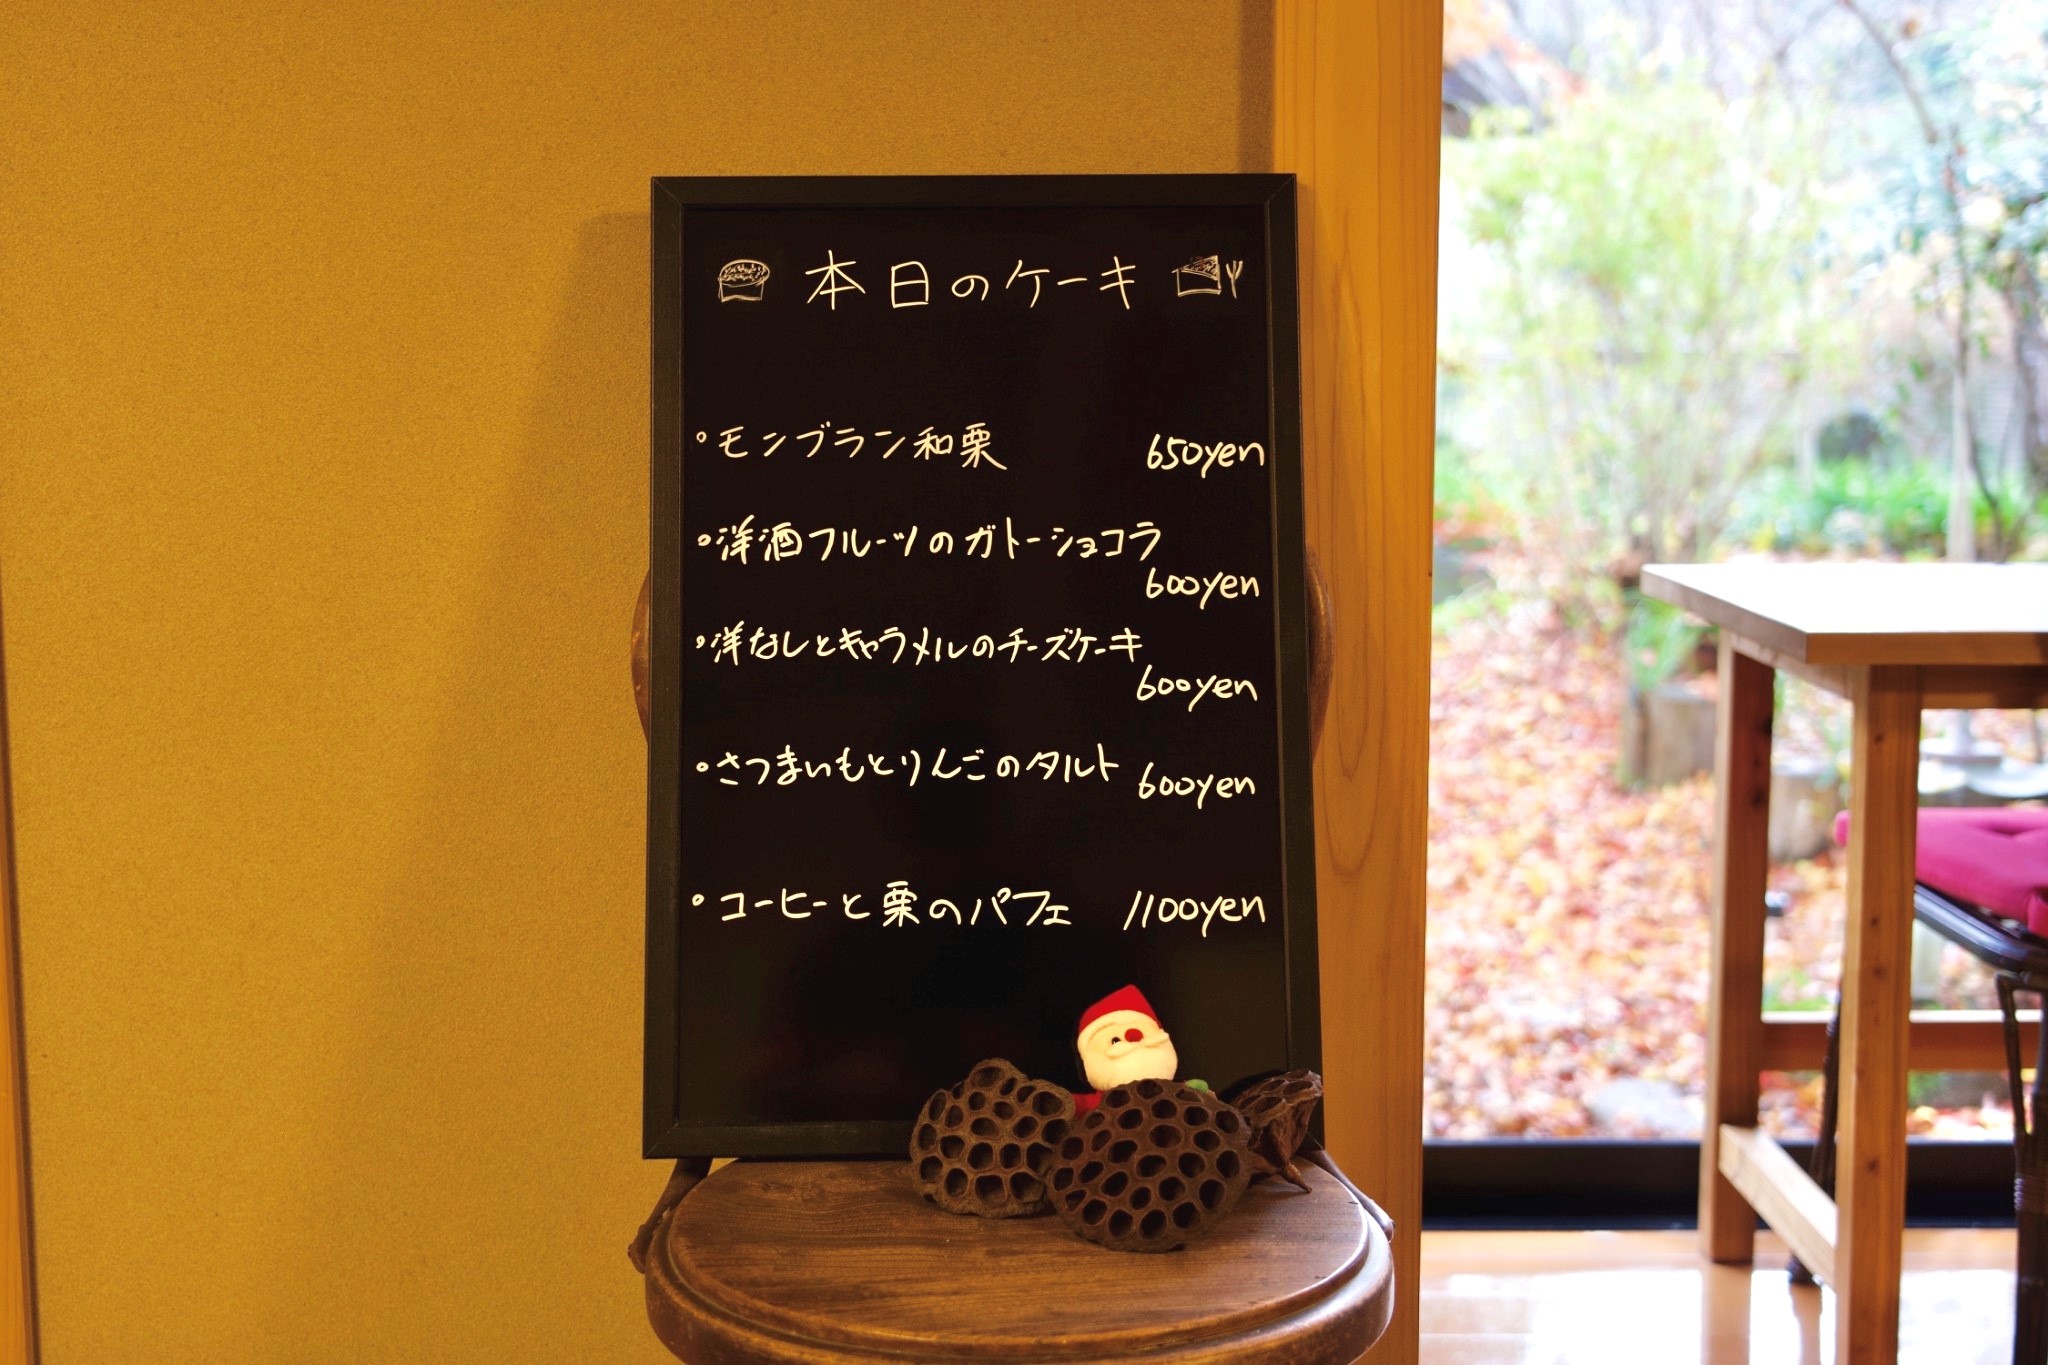 本日のケーキ
°モンブラン和栗 650yen
°洋酒フルーツのガトーショコラ
600yen
°洋なしとキャラメルのチーズケーキ
600yen
°さつまいもとりんごのタルト 600yen
°コーヒーと栗のパフェ 1100yen